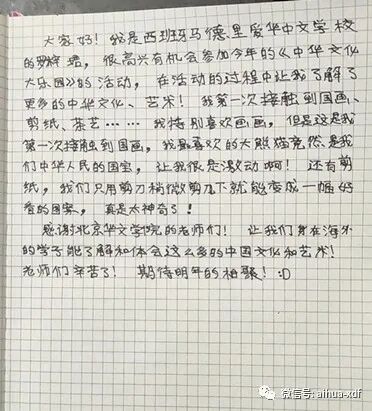 大家好！我是西班牙马德里爱华中文学校
的罗 ，很高兴有机会参加今年的《中华文化
大乐园》的活动，在活动的过程中让我了解了
更多的中华文化、艺术！我第一次接触到国画、
剪纸、茶艺……我特别喜欢画画，但是这是我
第一次接触到国画，我最喜欢的大熊猫竟然是我
们中华人民的国宝，让我很是激动啊！还有剪
纸，我们只用剪刀稍微剪几下就能变成一幅好
看的图案，真是太神奇了！
感谢北京华文学院的老师们！让我们身在海外
的学子能了解和体会这么多的中国文化和艺术！
老师们辛苦了！期待明年的相聚！:D
微信号: aihua-xdf